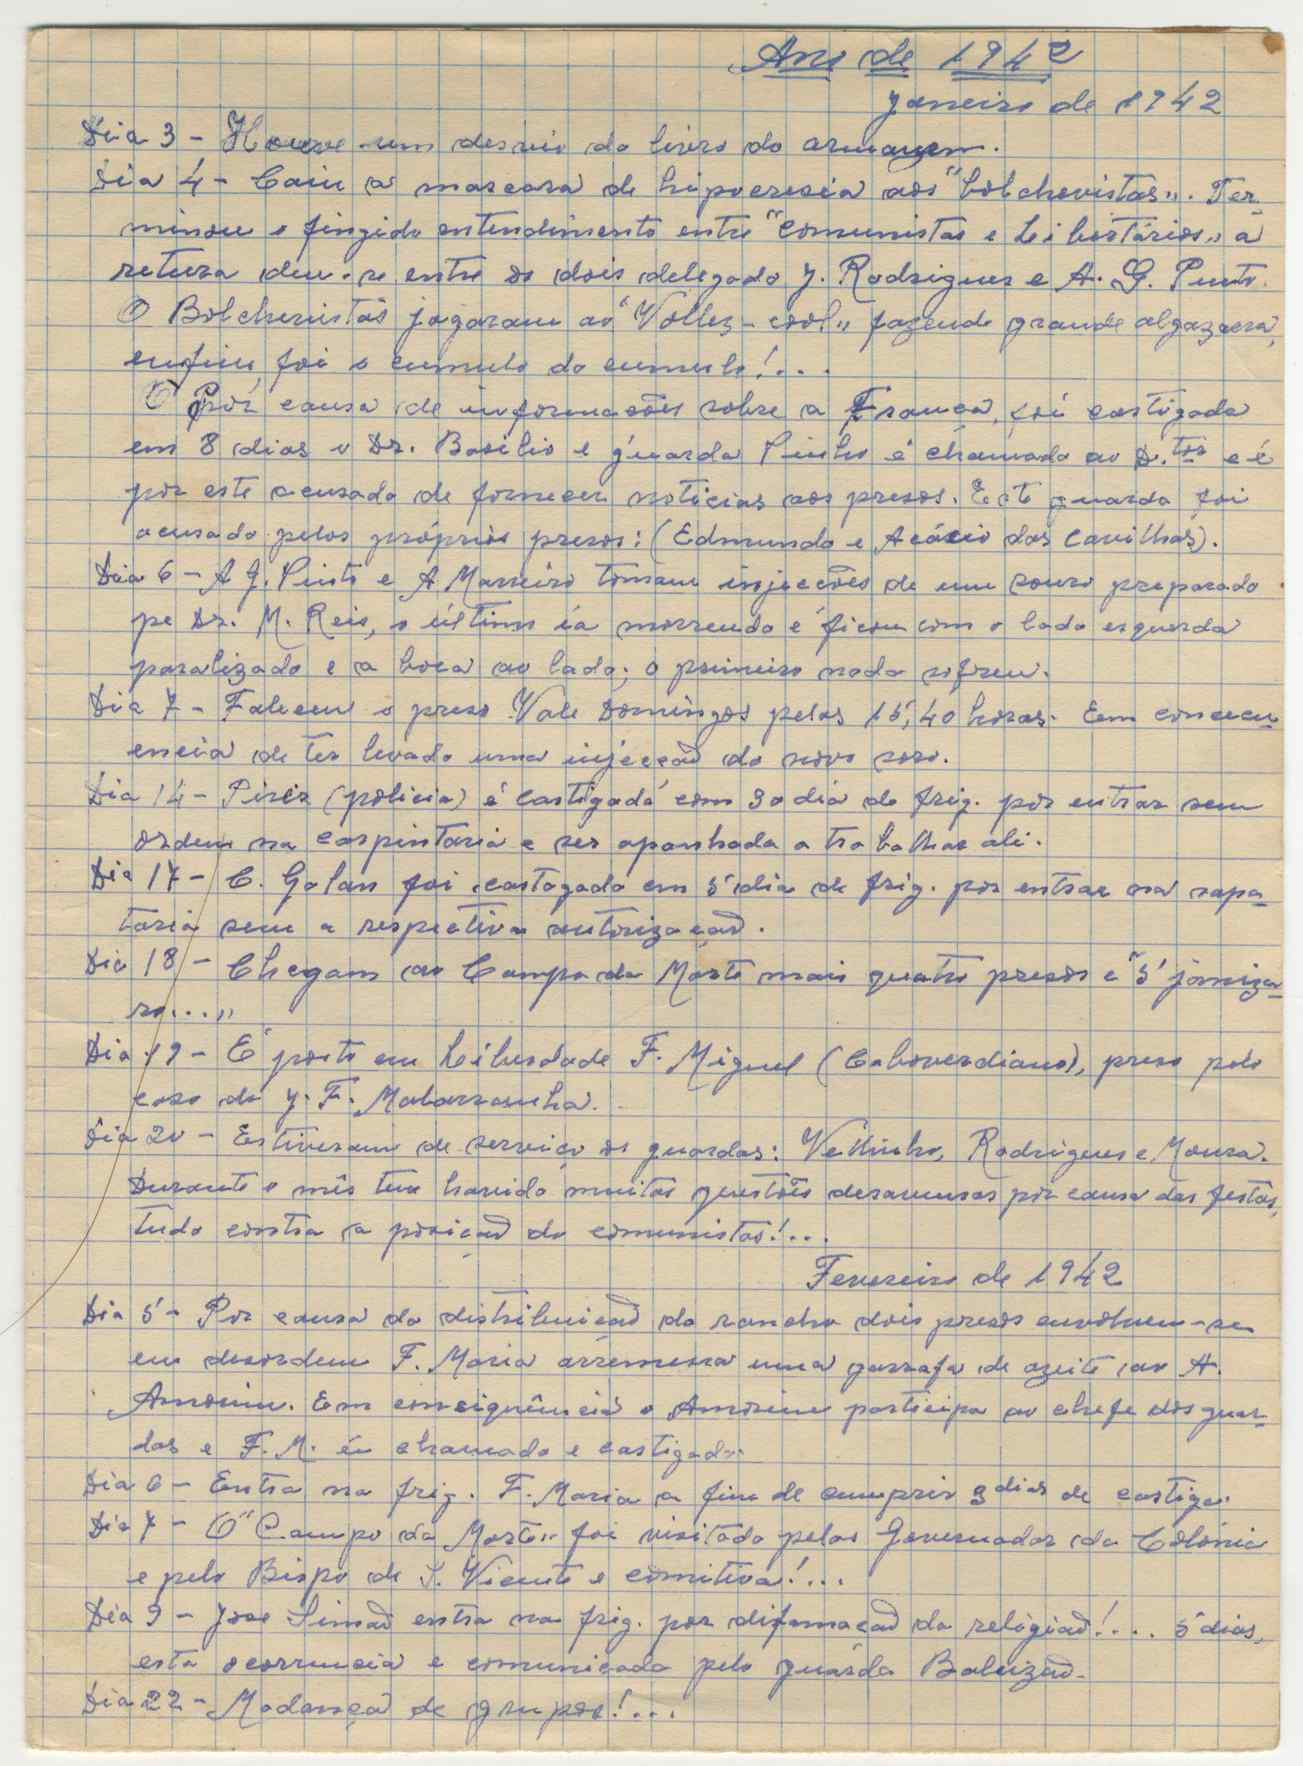 Ano de 1942
Janeiro de 1942
Dia 3 - Houve um desvio do livro do armazem.
Dia 4 - Caiu a mascara de hipocresia aos "bolchevistas". Ter-
minou o fingido entendimento entre "comunistas e Libertários" a
rutura deu-se entre os dois delegado J. Rodrigues e A. G. Pinto.
O Bolchevistas jogaram ao "Volley-bool" fazendo grande algazarra,
enfim foi o cumulo do cumulo!...
Pór causa de informações sobre a França, foi castigado
em 8 dias o Dr. Basilio e guarda Pinho é chamado ao D.tor e é
por este acusado de fornecer noticias aos presos. Este guarda foi
acusado pelos próprios presos: (Edmundo e Acácio das Cavilhas).
Dia 6 - A J. Pinto e A Marreiro tomam injecções de um souro preparado
pe Dr. M. Reis, o último ia morrendo e ficou com o lado esquerdo
paralizado e a boca ao lado; o primeiro nada sofreu.
Dia 7 - Faleceu o preso Vale Domingos pelas 15,40 horas. Em concecu-
encia de ter levado uma injecção do novo soro.
Dia 14 - Pires (policia) é castigado com 30 dia de frig. por entrar sem
ordem na carpintaria e ser apanhado a trabalhar ali.
Dia 17 - C. Galan foi castogado em 5 dia de frig. por entrar na sapa-
taria sem a respectiva autorização.
Dia 18 - Chegam ao Campo da Morte mais quatro presos e "5 janiza-
ro..."
Dia 19 - É posto em Liberdade F. Miguel (Caboverdiano), preso pelo
caso do J. F. Malarranha.
Dia 20 - Estiveram de serviço os guardas: Velhinho, Rodrigues e Moura.
Durante o mês tem havido muitas questões desavensas por causa das festas,
tudo contra a posição do comunistas!...
Fevereiro de 1942
Dia 5 - Por causa da distribuição do rancho dois presos envolvem-se
em desordem F. Maria arremessa uma garrafa de azeite ao A.
Amorim. Em conciquência o Amorim participa ao chefe dos guar-
das e F. M. é chamado e castigado.
Dia 6 - Entra na frig. F. Maria a fim de cumprir 3 dias de castigo.
Dia 7 - O "Campo da Morte" foi visitado pelos Governador da Colónia
e pelo Bispo de S. Vicente e comitiva!...
Dia 9 - Jose Simão entra na frig. por difamação da religião!... 5 dias,
esta ocorrencia e comunicada pelo guarda Baleizão.
Dia 22 - Madança de grupos!...